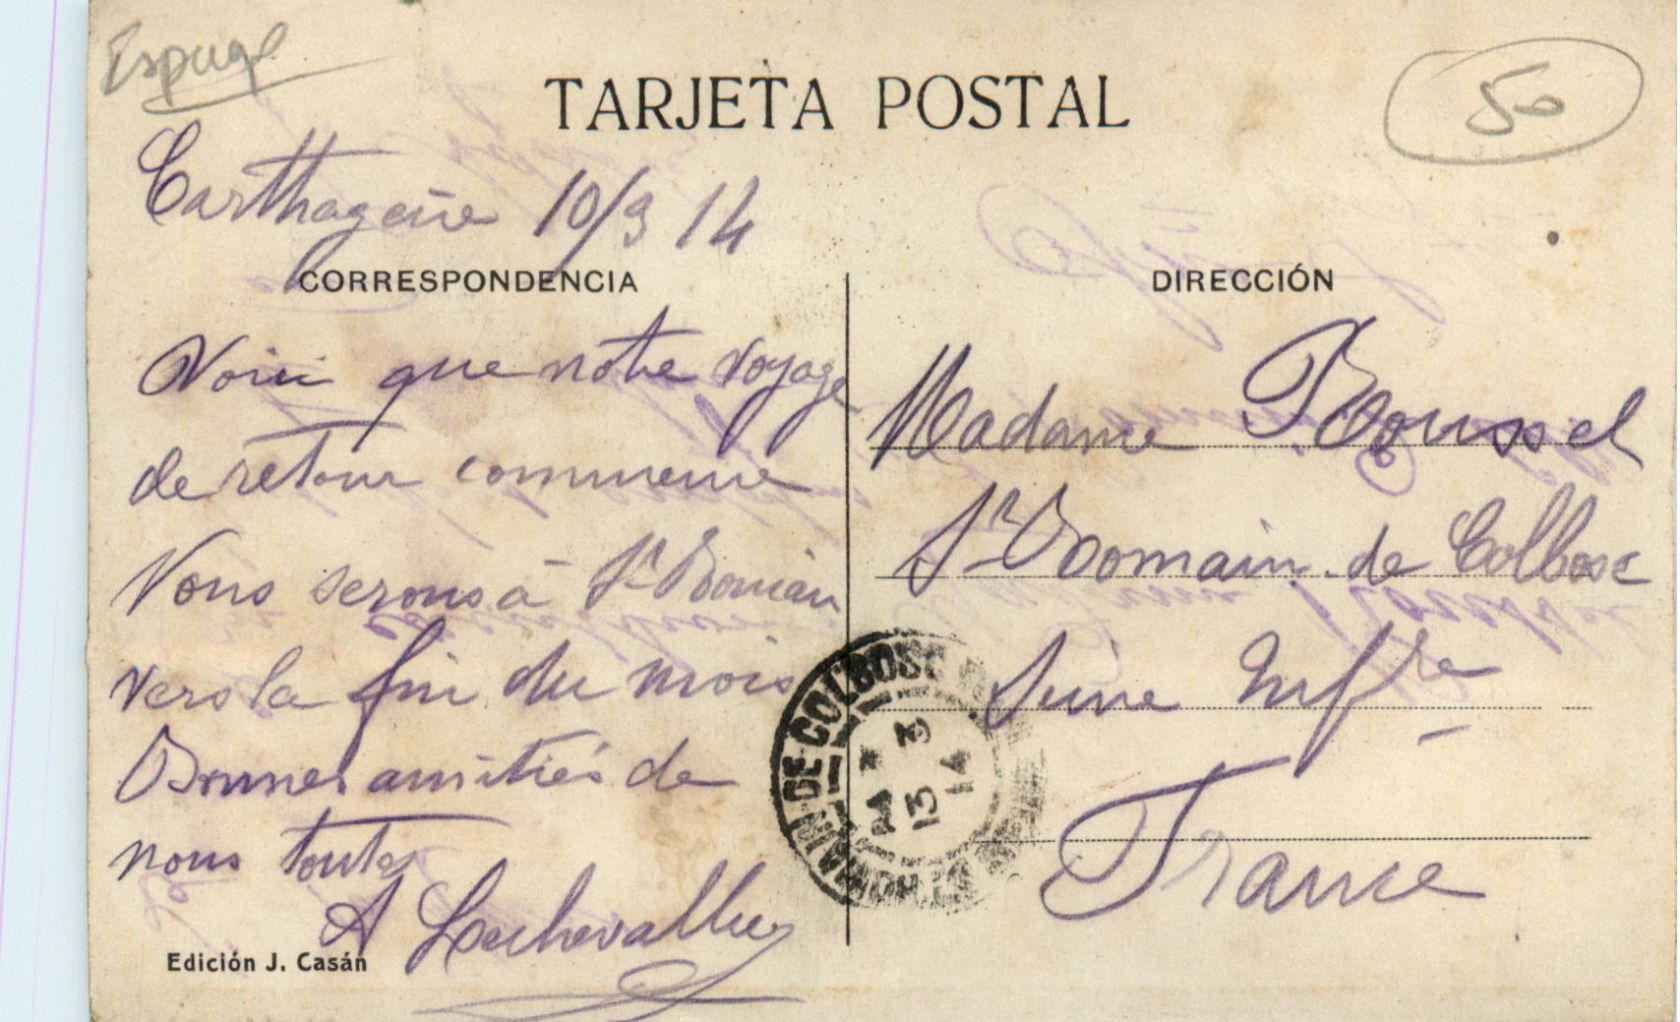 Espagne
TARJETA POSTAL
50
Carthagène 10/3 14
CORRESPONDENCIA
DIRECCIÓN
Voici que notre voyage
de retour commence
Nous serons à St Romain
vers la fin du mois
Bonnes amitiés de
nous toutes
A Lechevallier
Edición J. Casán
Madame Roussel
St Romain de Colbosc
Seine Infre
France
ST ROMAIN-DE-COLBOSC
13 3
14